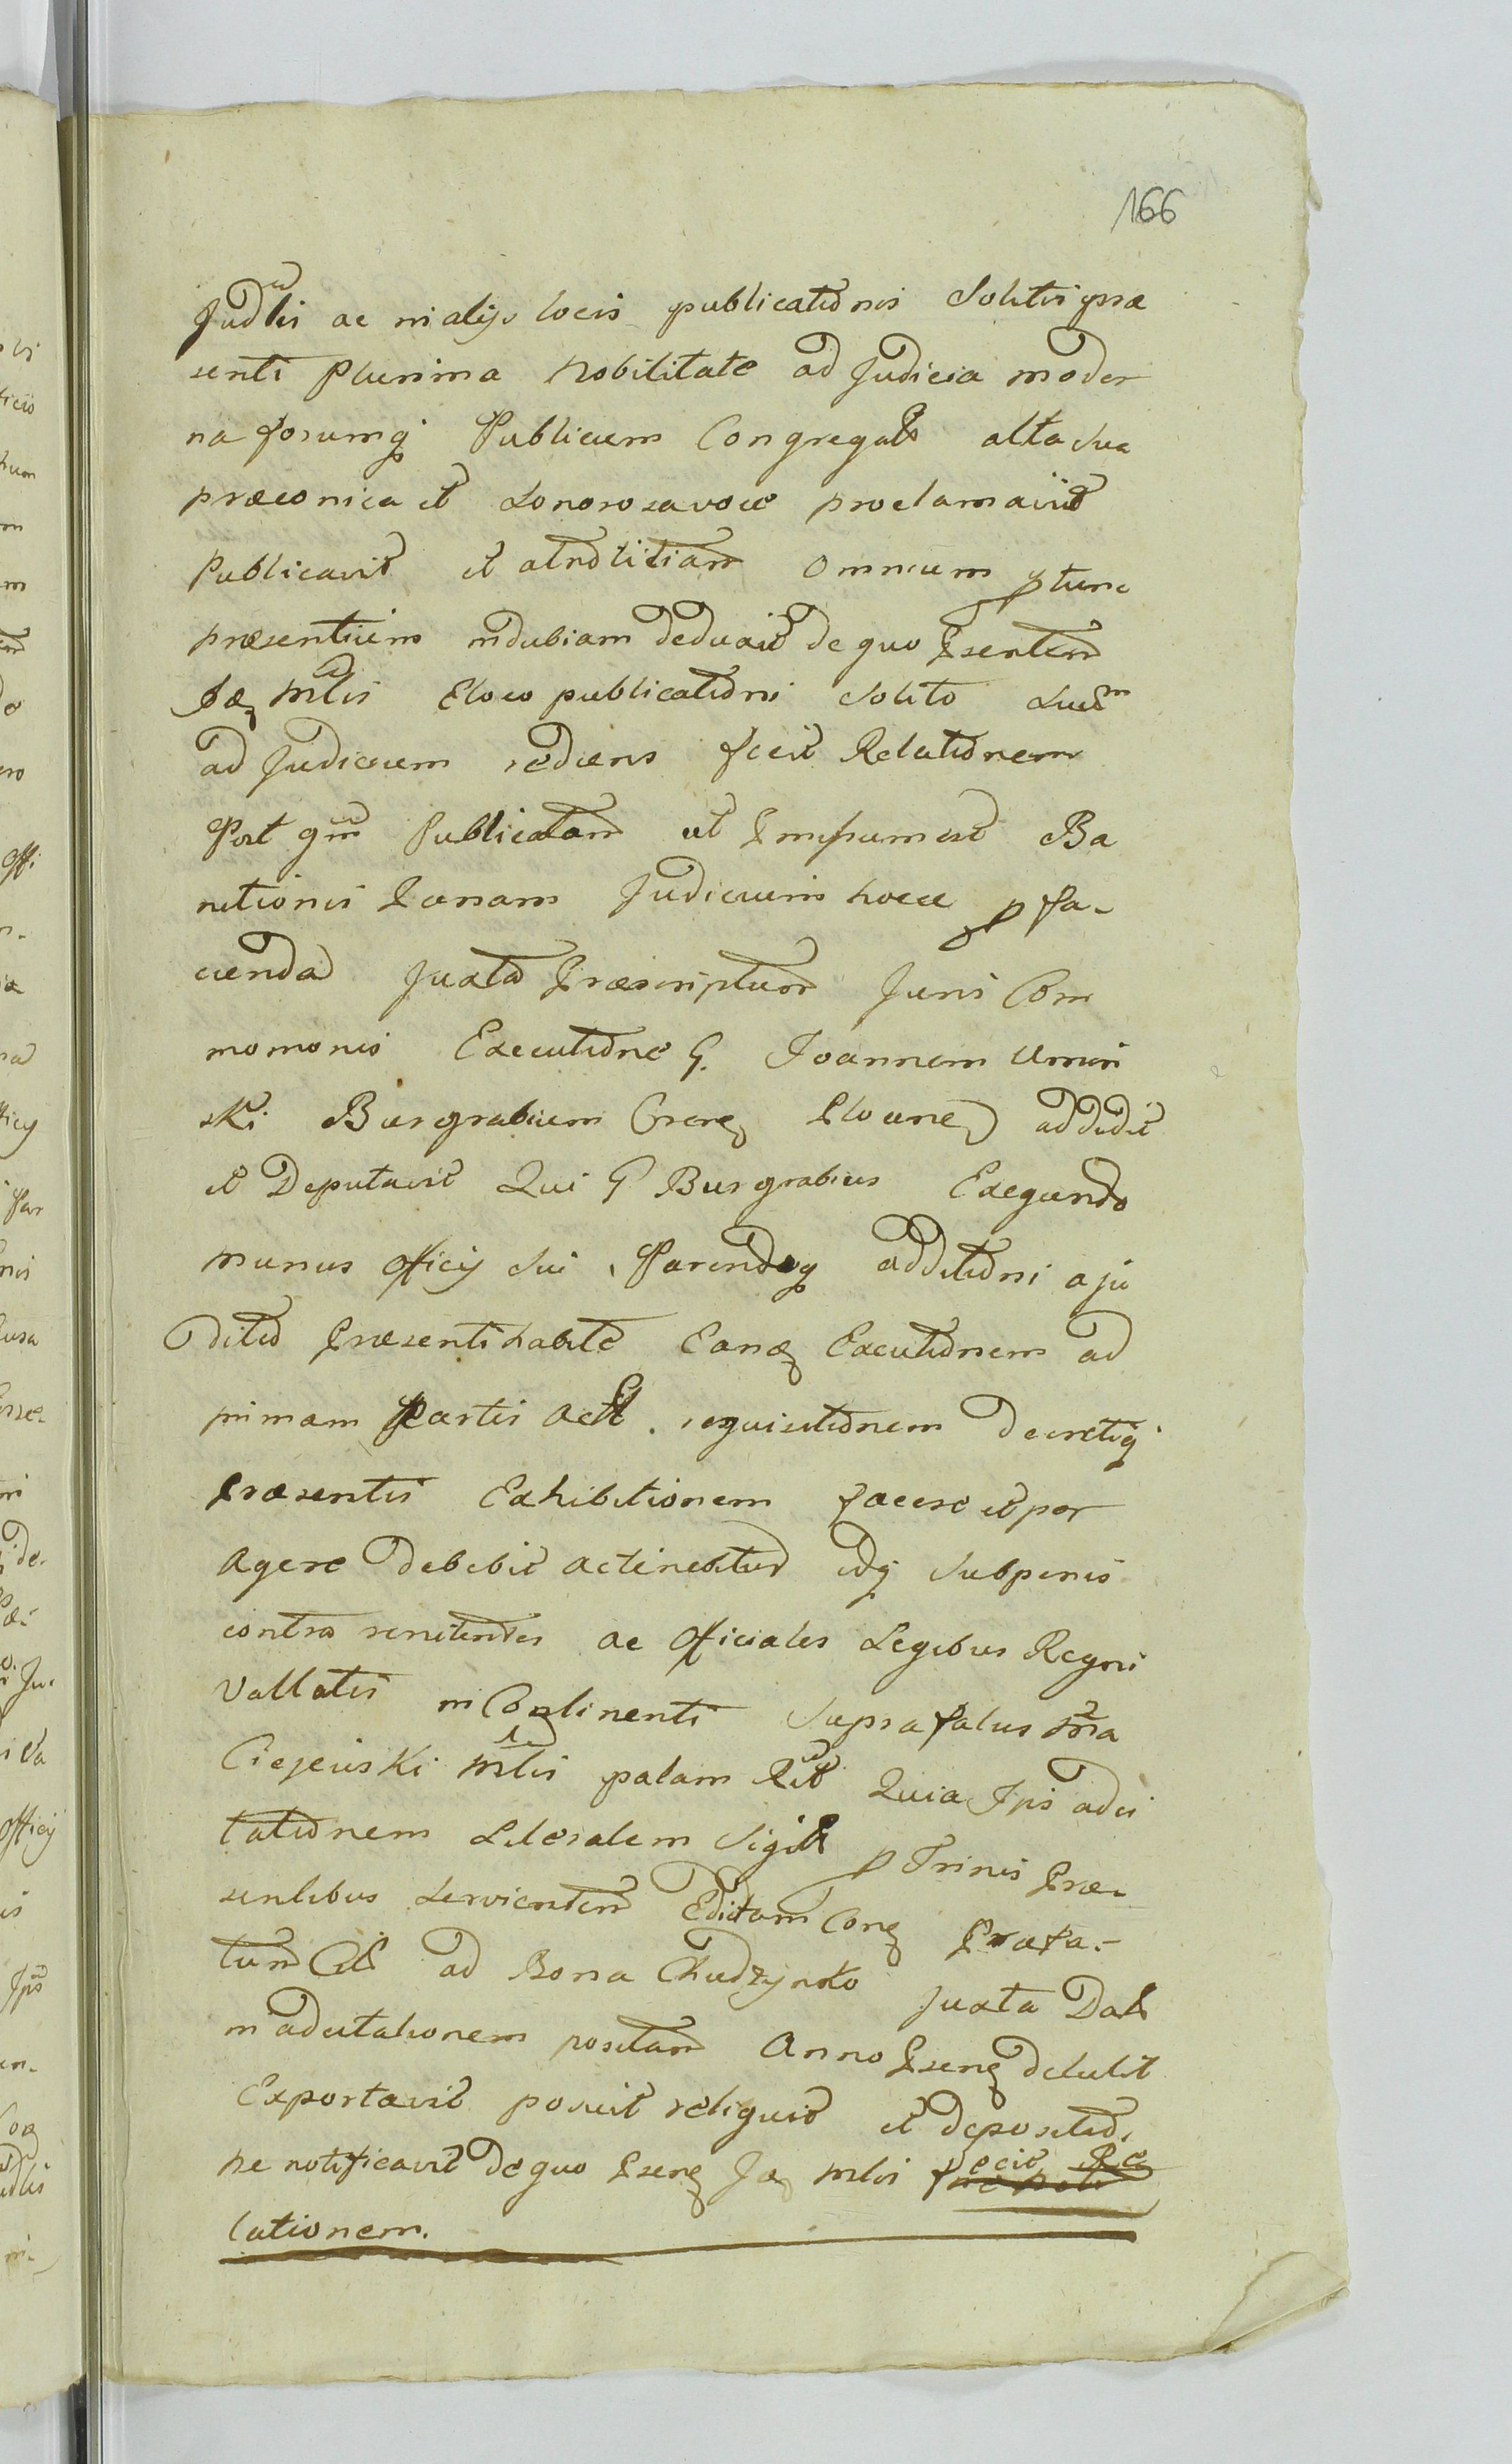 166
Judlis ac in alijs locis publicationis Solitis præ
senti plurima Nobilitate ad Judicia moder
na forumq Publicum Congregato alta sua
præconica et Sonorosa voce proclamavit
Publicavit et ad notitiam omnium ptunc
præsentium indubiam deduxit de quo Psentem
Mlis eloco publicationi solito
ad Judicium rediens fecit Relationem
Post qm Publicatam ut Banitionis
nitionis Pænam Judicium hocce p fa-
cienda Juxta Præscriptum Juris Com
momonis Executione G. Joannem Umin
ski Burgrabium Addidit
et Deputavit Qui G Burgrabius Exequendo
munus officij sui, Parendoq additioni a ju
ditio Præsenti habite Eanq Executionem ad
primam Partis Act. requisitionem decretiq
præsentis Exhibitionem facere et per
agere debebit actenebitur idq subpenis
contra renitentes ac Officiales Legibus Regni
Vallatis in Continenti suprafatus
Ciejewski Mlis palam Quia Ips adci
tationem Literalem Sigill p Trinis Præ-
sentibus servientem Editam Præfa-
tum ad Bona Chudzynko juxta Dat
in adcitationem positam Anno detulit
Exportavit posuit reliquit et depositio
ne notificavit de quo Mlis fecit Re
lationem.